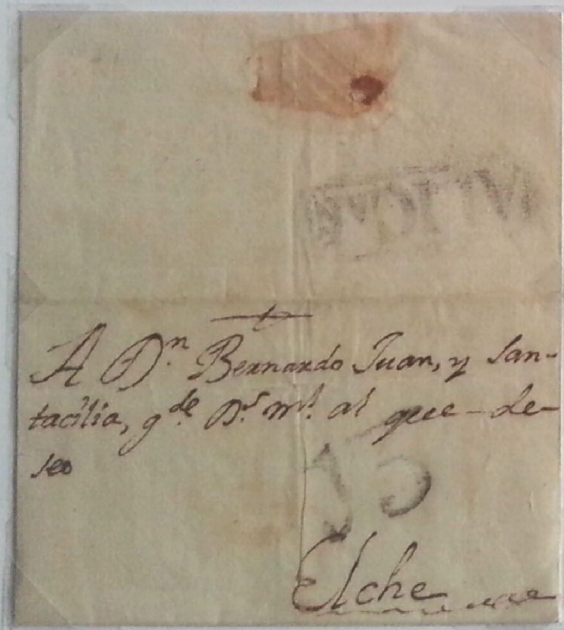 A D.n Bernardo Juan, y San-
tacilia, g.de D.s m.s a.s que de-
seo
Elche